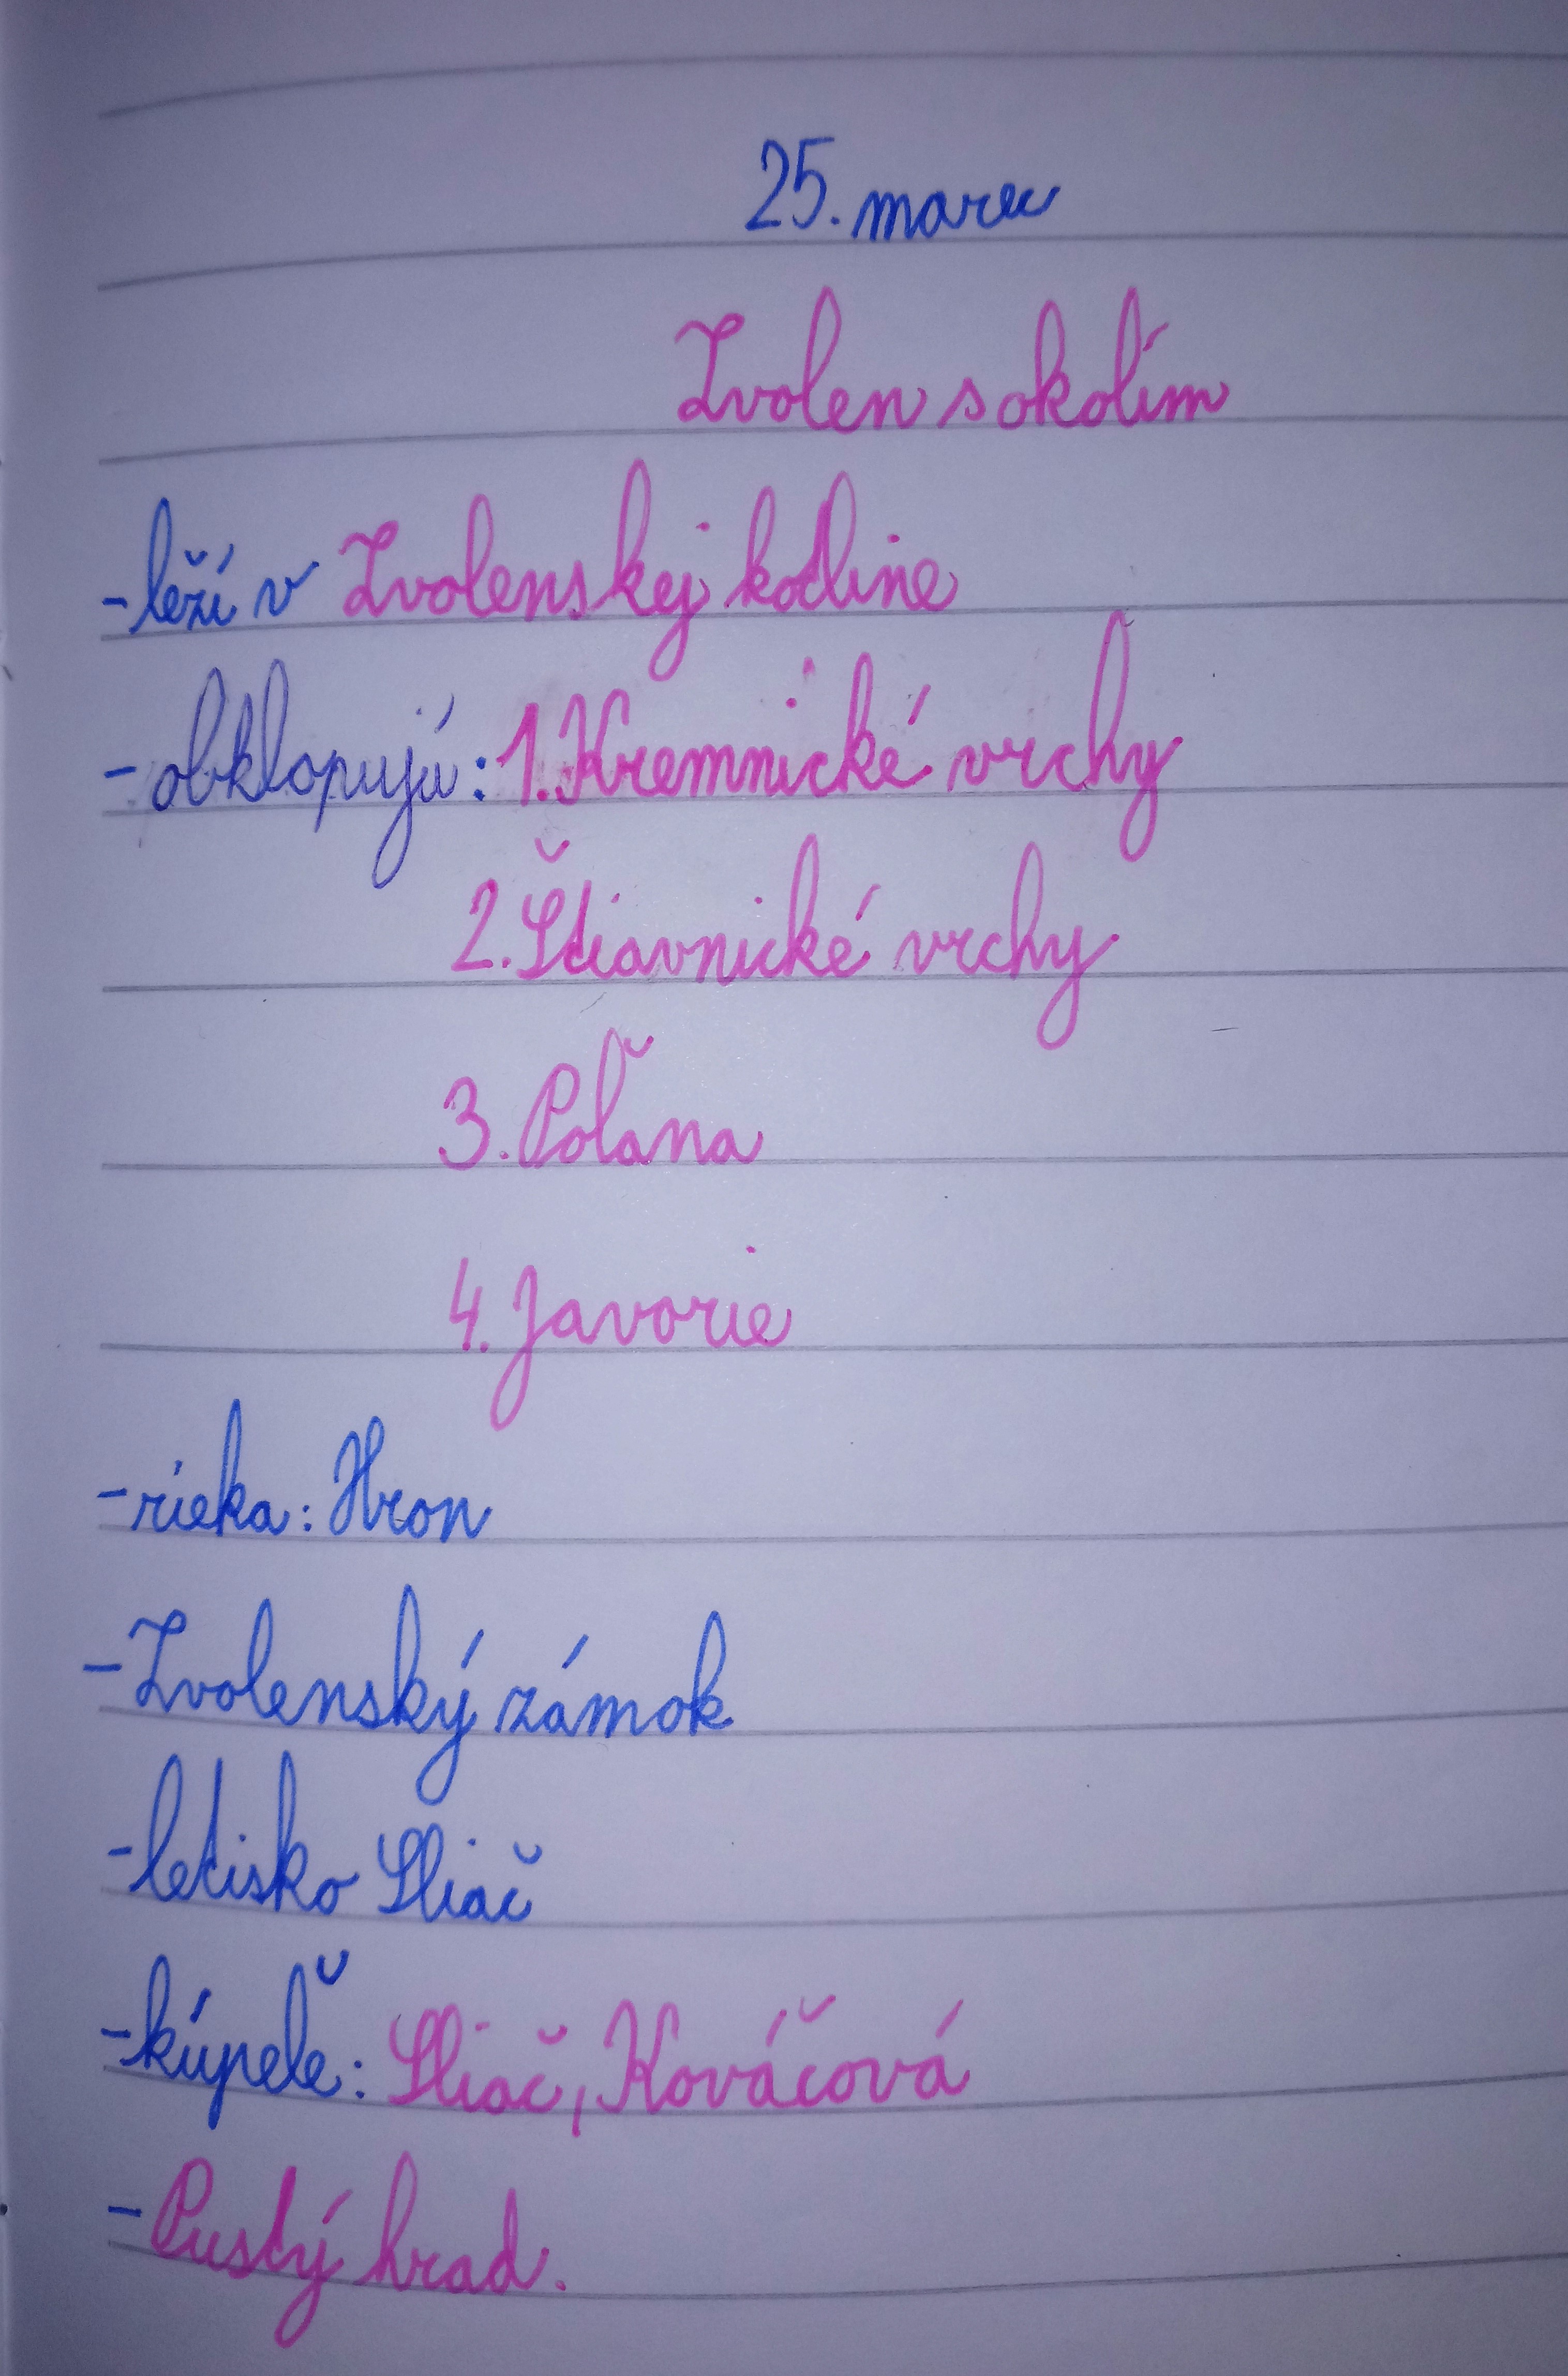 25. marec
Zvolen s okolím
-leží v Zvolenskej kotline
-obklopujú: 1. Kremnické vrchy
2. Štiavnické vrchy
3. Poľana
4. Javorie
-rieka: Hron
-Zvolenský zámok
-letisko Sliač
-kúpele: Sliač, Kováčová
-Pustý hrad.